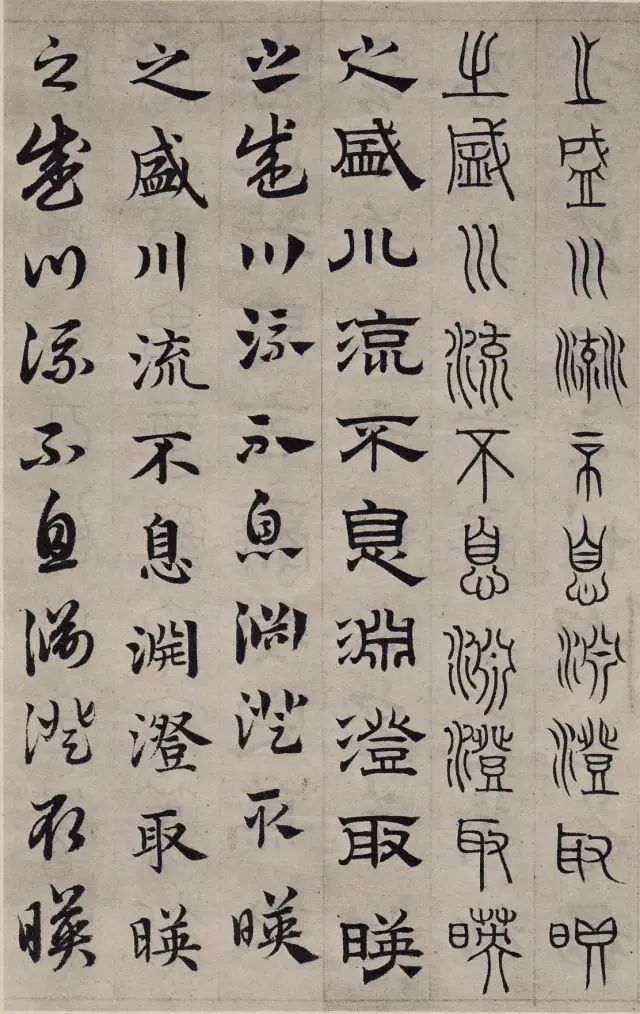 之盛川流不息淵澄取映
之盛川流不息淵澄取暎
之盛川流不息淵澄取暎
之盛川流不息淵澄取暎
之盛川流不息淵澄取暎
之盛川流不息淵澄取暎